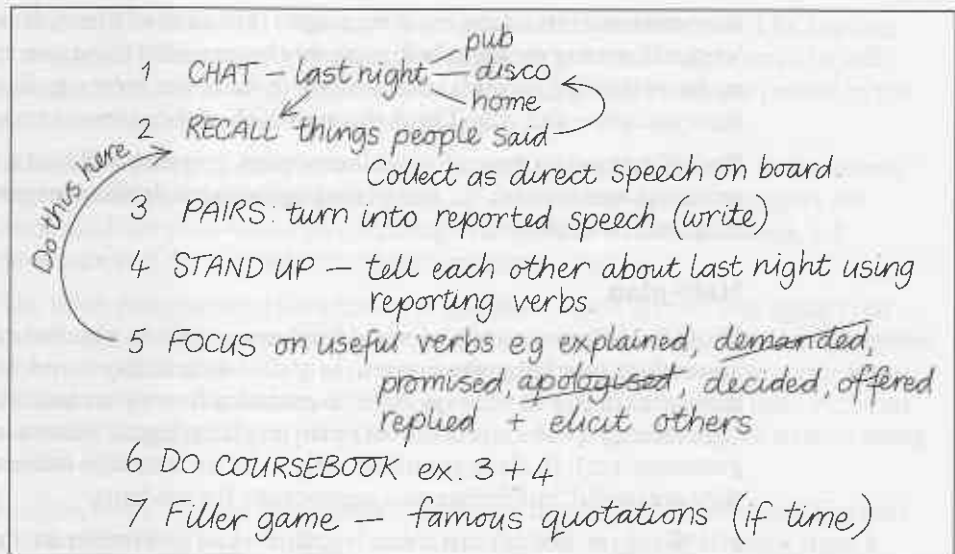 pub
1 CHAT – last night – disco
home
2 RECALL things people said
Do this here
Collect as direct speech on board.
3 PAIRS: turn into reported speech (write)
4 STAND UP – tell each other about last night using
reporting verbs.
5 FOCUS on useful verbs eg explained, demanded,
promised, apologised, decided, offered
replied + elicit others
6 DO COURSEBOOK ex. 3 + 4
7 Filler game – famous quotations (if time)